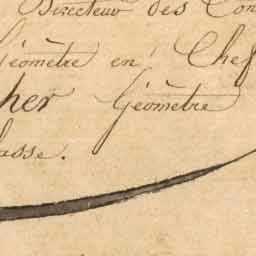 Directeur des Con
Géomètre en Chef
her Géomètre
lasse.